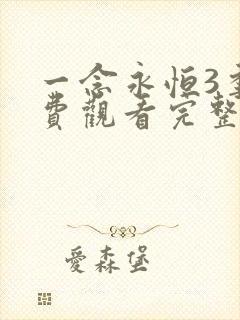 一念永恒3
費觀看完整
愛森堡